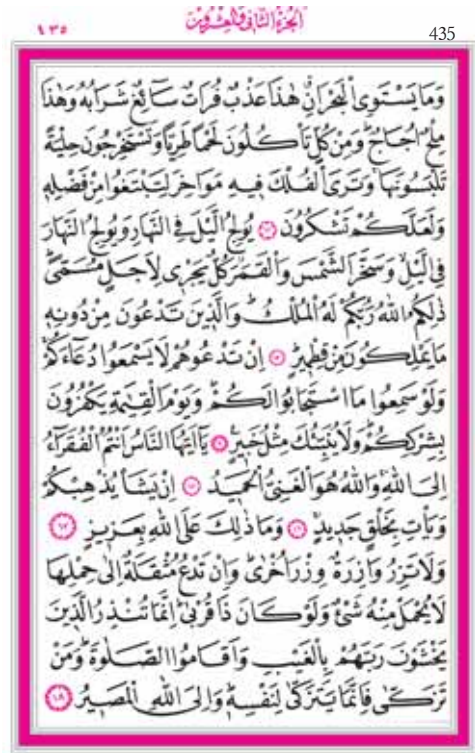 ٤٣٥ الجزء الثاني والعشرون 435
وَمَا يَسْتَوِي الْبَحْرَانِ هٰذَا عَذْبٌ فُرَاتٌ سَائِغٌ شَرَابُهُ وَهٰذَا
مِلْحٌ اُجَاجٌ وَمِنْ كُلٍّ تَأْكُلُونَ لَحْمًا طَرِيًّا وَتَسْتَخْرِجُونَ حِلْيَةً
تَلْبَسُونَهَا وَتَرَى الْفُلْكَ فِيهِ مَوَاخِرَ لِتَبْتَغُوا مِنْ فَضْلِهِ
وَلَعَلَّكُمْ تَشْكُرُونَ ﴿١٢﴾ يُولِجُ الَّيْلَ فِي النَّهَارِ وَيُولِجُ النَّهَارَ
فِي الَّيْلِ وَسَخَّرَ الشَّمْسَ وَالْقَمَرَ كُلٌّ يَجْرِي لِاَجَلٍ مُسَمًّى
ذٰلِكُمُ اللّٰهُ رَبُّكُمْ لَهُ الْمُلْكُ وَالَّذِينَ تَدْعُونَ مِنْ دُونِهِ
مَا يَمْلِكُونَ مِنْ قِطْمِيرٍ ﴿١٣﴾ اِنْ تَدْعُوهُمْ لَا يَسْمَعُوا دُعَاءَكُمْ
وَلَوْ سَمِعُوا مَا اسْتَجَابُوا لَكُمْ وَيَوْمَ الْقِيٰمَةِ يَكْفُرُونَ
بِشِرْكِكُمْ وَلَا يُنَبِّئُكَ مِثْلُ خَبِيرٍ ﴿١٤﴾ يَا اَيُّهَا النَّاسُ اَنْتُمُ الْفُقَرَاءُ
اِلَى اللّٰهِ وَاللّٰهُ هُوَ الْغَنِيُّ الْحَمِيدُ ﴿١٥﴾ اِنْ يَشَأْ يُذْهِبْكُمْ
وَيَأْتِ بِخَلْقٍ جَدِيدٍ ﴿١٦﴾ وَمَا ذٰلِكَ عَلَى اللّٰهِ بِعَزِيزٍ ﴿١٧﴾
وَلَا تَزِرُ وَازِرَةٌ وِزْرَ اُخْرٰى وَاِنْ تَدْعُ مُثْقَلَةٌ اِلٰى حِمْلِهَا
لَا يُحْمَلْ مِنْهُ شَيْءٌ وَلَوْ كَانَ ذَا قُرْبٰى اِنَّمَا تُنْذِرُ الَّذِينَ
يَخْشَوْنَ رَبَّهُمْ بِالْغَيْبِ وَاَقَامُوا الصَّلٰوةَ وَمَنْ
تَزَكّٰى فَاِنَّمَا يَتَزَكّٰى لِنَفْسِهِ وَاِلَى اللّٰهِ الْمَصِيرُ ﴿١٨﴾